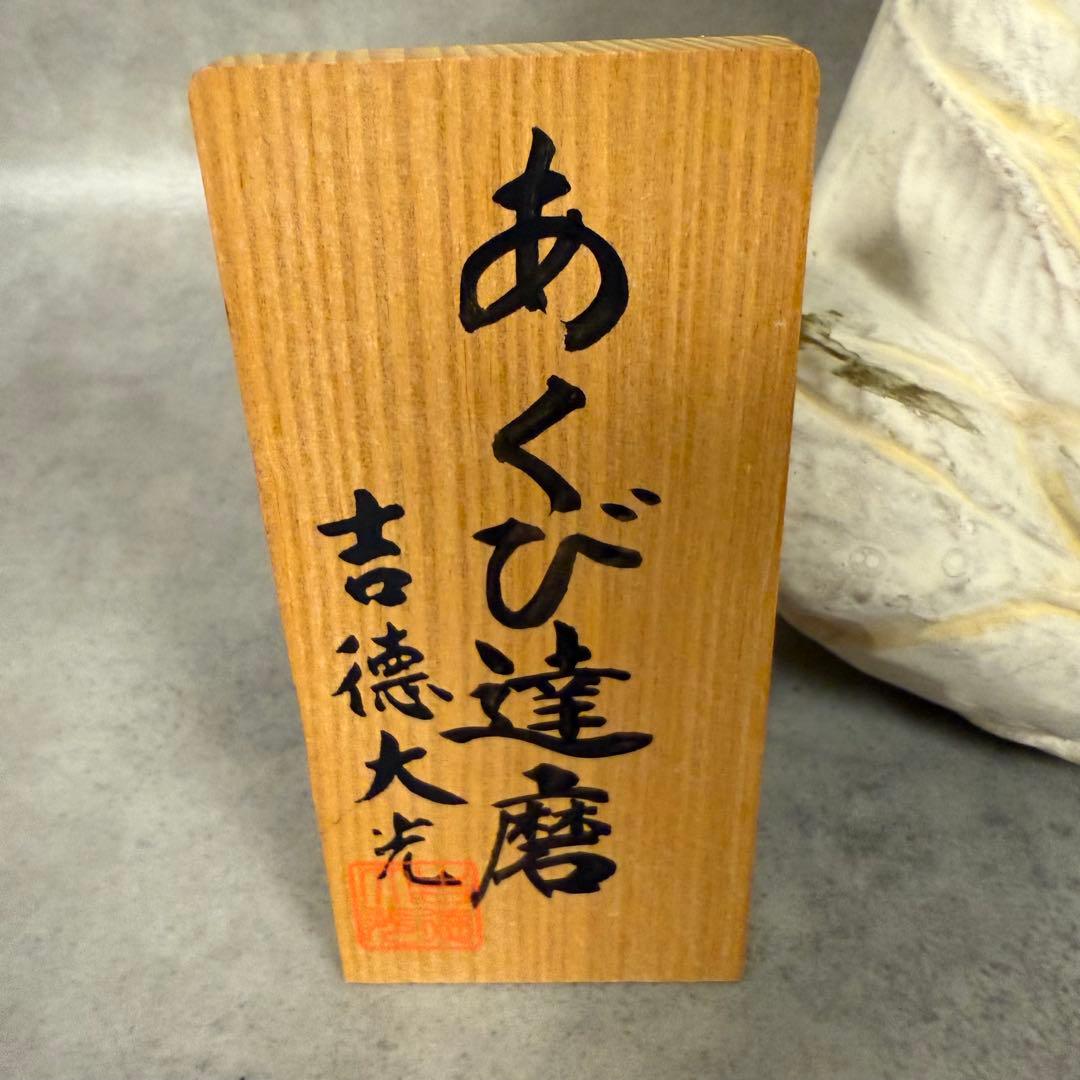 あくび達磨
吉徳大光